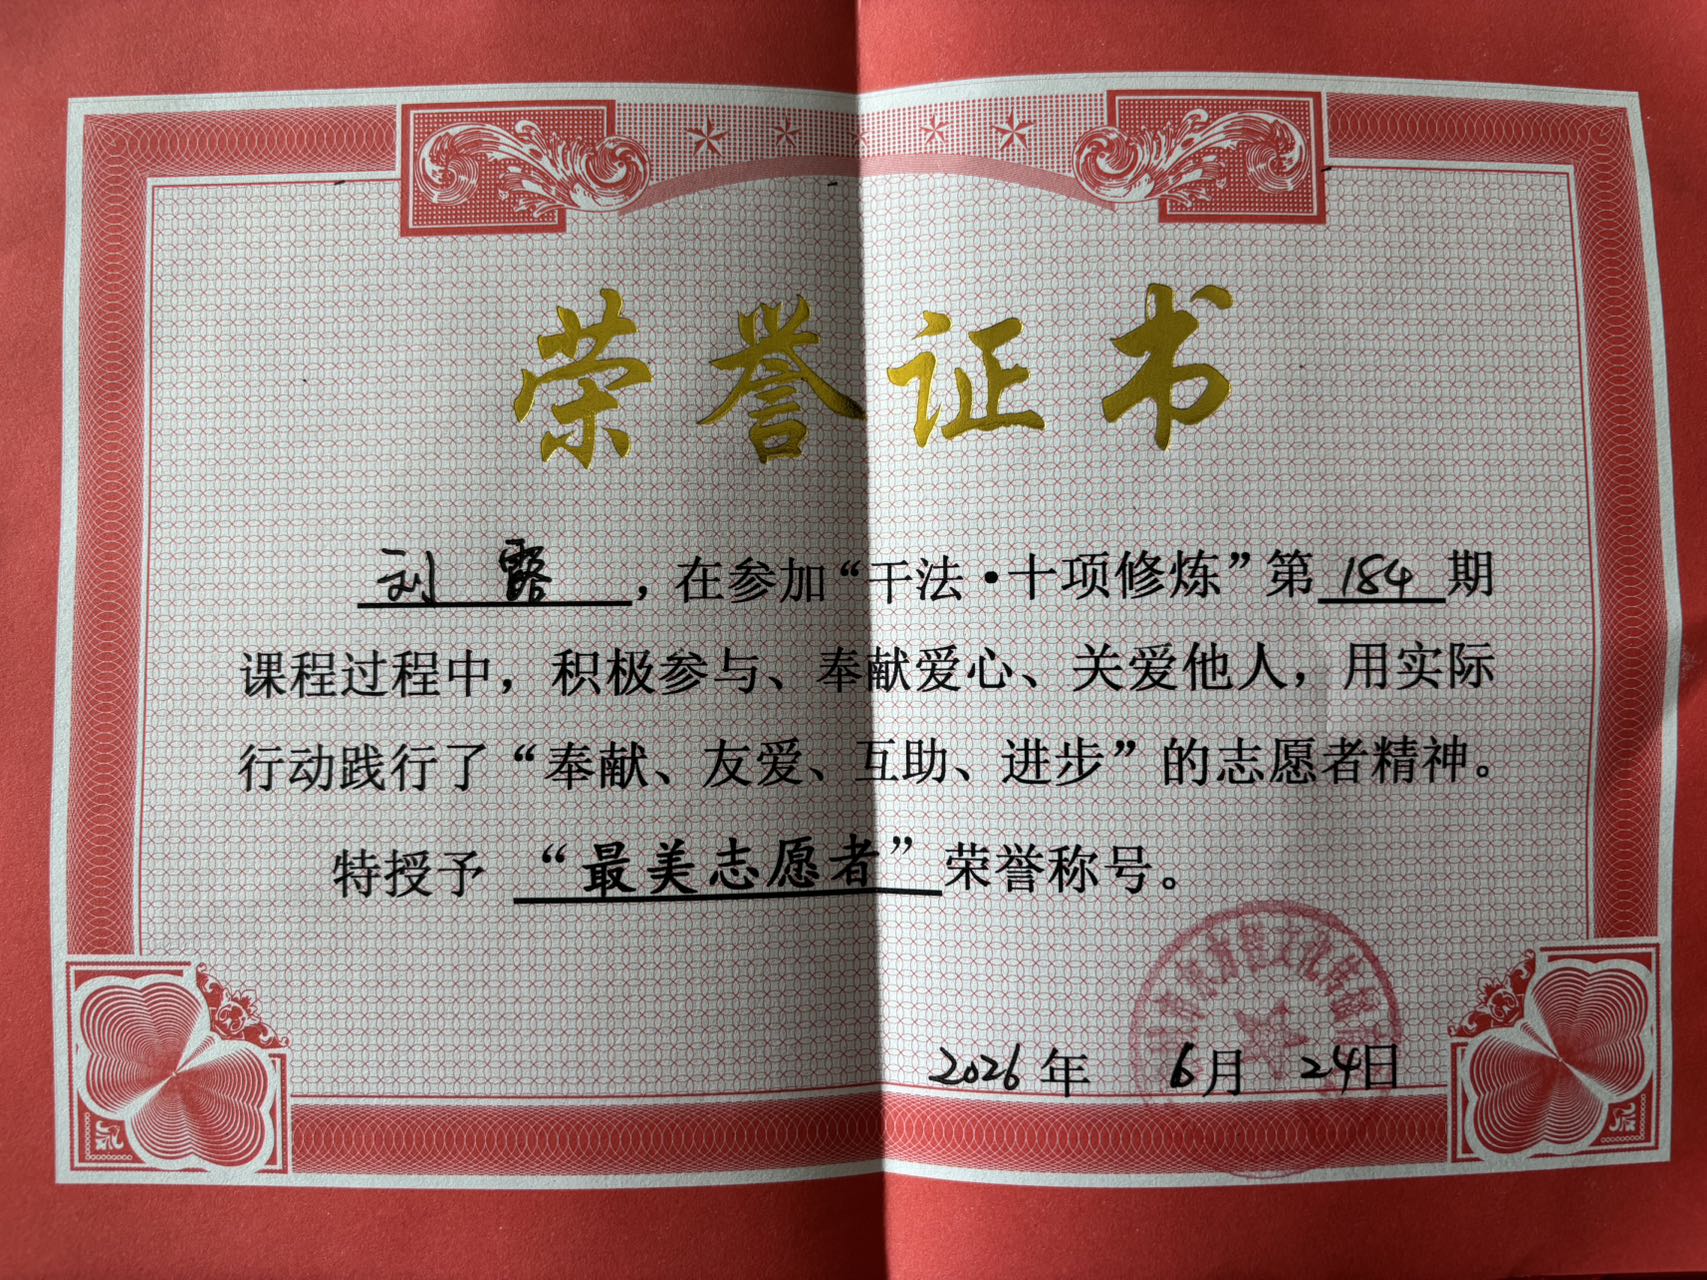 荣誉证书
刘 露，在参加“干法·十项修炼”第 184 期
课程过程中，积极参与、奉献爱心、关爱他人，用实际
行动践行了“奉献、友爱、互助、进步”的志愿者精神。
特授予 “最美志愿者” 荣誉称号。
2026年 6月 24日